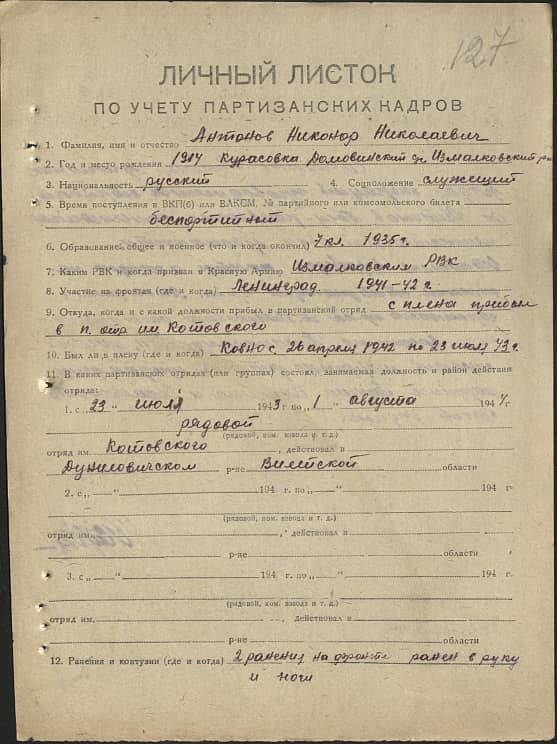 127
ЛИЧНЫЙ ЛИСТОК
ПО УЧЕТУ ПАРТИЗАНСКИХ КАДРОВ
1. Фамилия, имя и отчество Антонов Никонор Николаевич
2. Год и место рождения 1917 Курасовка Домовинский Измалковский
3. Национальность русский 4. Соцположение служещий
5. Время поступления в ВКП(б) или ВЛКСМ, № партийного или комсомольского билета
беспортийный
6. Образование: общее и военное (что и когда окончил) 7 кл. 1935 г.
7. Каким РВК и когда призван в Красную Армию Измалковским РВК
8. Участие на фронтах (где и когда) Ленинград. 1941-42 г.
9. Откуда, когда и с какой должности прибыл в партизанский отряд с плена прибыл
в п. отр им Котовского
10. Был ли в плену (где и когда) Ковнос, 26 апреля 1942 по 23 июля 43 г.
11. В каких партизанских отрядах (или группах) состоял, занимаемая должность и район действия
отряда:
1. с „23 “ июля 1943 г. по „1 “ августа 1944 г.
рядовой
(рядовой, ком. взвода и т. д.)
отряд им. Котовского , действовал в
Дуниловичском р-не Вилейской области
2. с „ “ 194 г. по „ “ 194 г.
(рядовой, ком. взвода и т. д.)
отряд им. , действовал в
р-не области
3. с „ “ 194 г. по „ “ 194 г.
(рядовой, ком. взвода и т. д.)
отряд им. , действовал в
р-не области
12. Ранения и контузии (где и когда) 2 ранения на фронте ранен в руку
и ноги